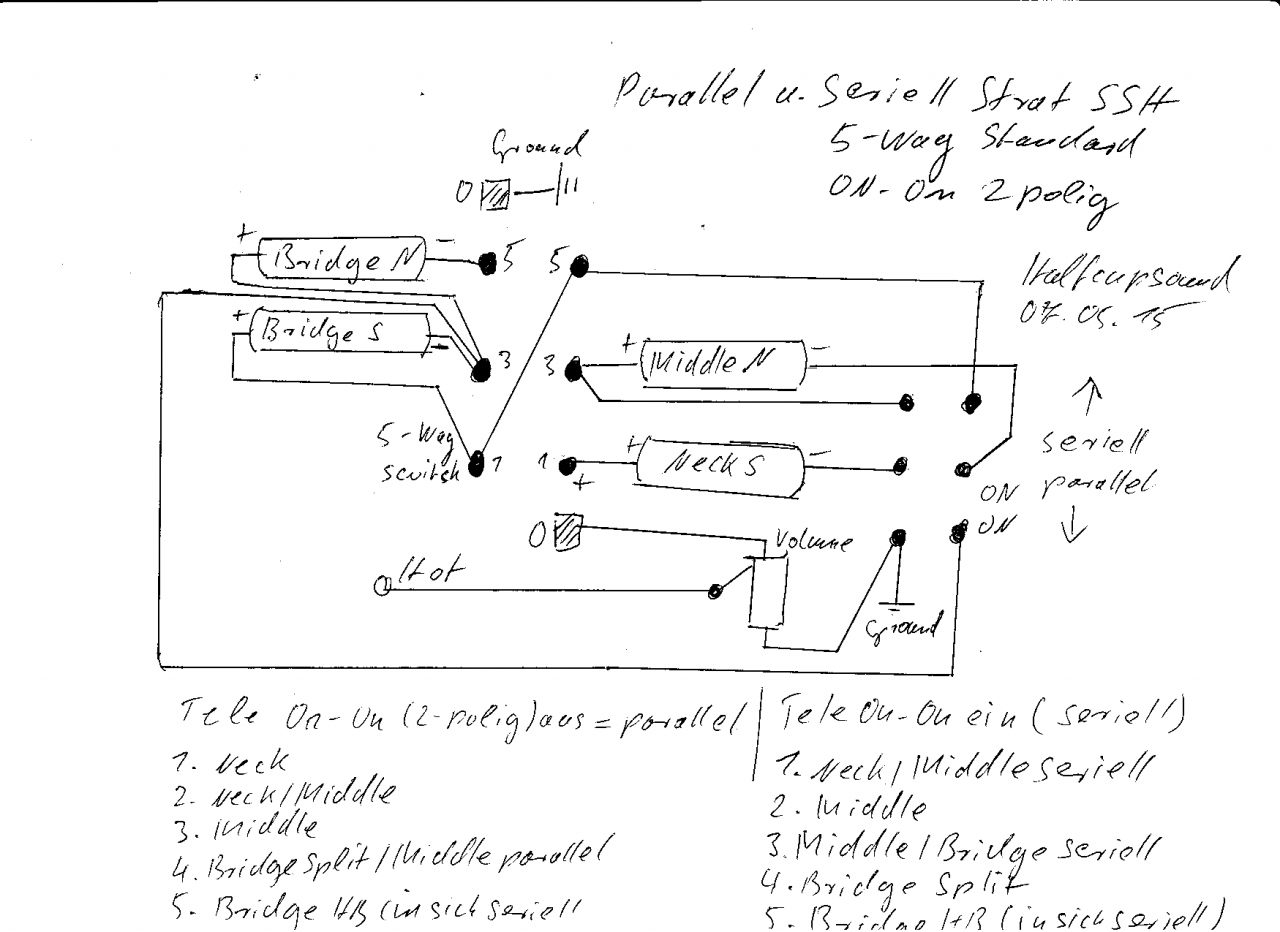 Parallel u. Seriell Strat SSH
5-Way Standard
ON-On 2polig
Ground
0
+ Bridge N - 5 5
Halfcupsound
+ Bridge S - 3 3 + Middle N -
seriell
5-Way switch 1 1 + + Neck S -
ON parallel
ON
0
Volume
Hot
Ground
Tele On-On (2-polig) aus = parallel
1. Neck
2. Neck/Middle
3. Middle
4. Bridge Split/Middle parallel
5. Bridge HB (in sich seriell
Tele On-On ein (seriell)
1. Neck/Middle seriell
2. Middle
3. Middle/Bridge seriell
4. Bridge Split
5. Bridge HB (in sich seriell)